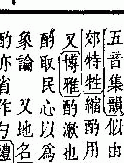 五音集韻似由
郊特牲縮酌用
又博雅酌漱也
酌取民心以爲
象論 又地名
酌亦省作勺禮